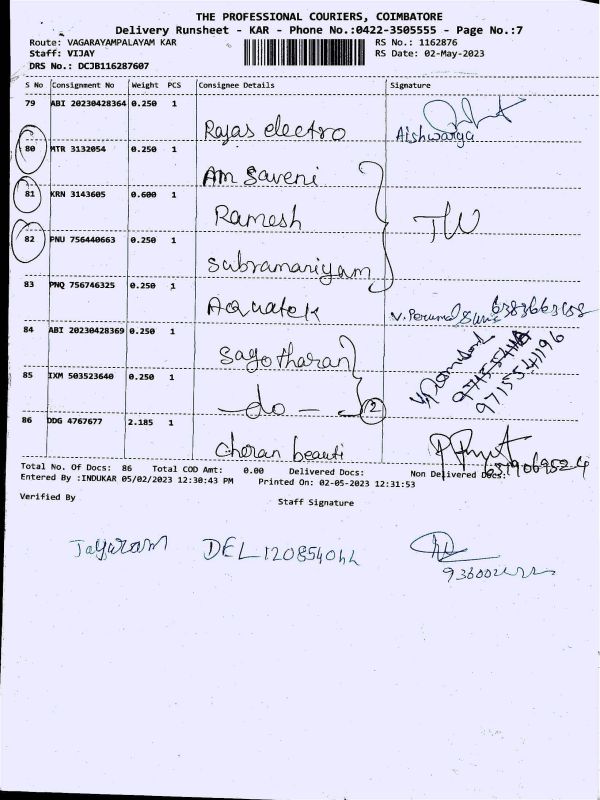 THE PROFESSIONAL COURIERS, COIMBATORE
Delivery Runsheet - KAR - Phone No.:0422-3505555 - Page No.:7
Route: VAGARAYAMPALAYAM KAR RS No.: 1162876
Staff: VIJAY RS Date: 02-May-2023
DRS No.: DCJB116287607
S No Consignment No Weight PCS Consignee Details Signature
79 ABI 20230428364 0.250 1 Rajas electro Aishwarya
80 MTR 3132054 0.250 1 Am Saveni
81 KRN 3143605 0.600 1 Ramesh TW
82 PNU 756440663 0.250 1 Subramaniyam
83 PNQ 756746325 0.250 1 Aquatek
84 ABI 20230428369 0.250 1
85 IXM 503523640 0.250 1 -do- 2 9715541196
86 DDG 4767677 2.185 1 Cheran beauti
Total No. Of Docs: 86 Total COD Amt: 0.00 Delivered Docs: Non Delivered Docs:
Entered By :INDUKAR 05/02/2023 12:30:43 PM Printed On: 02-05-2023 12:31:53
Verified By Staff Signature
Jayaram